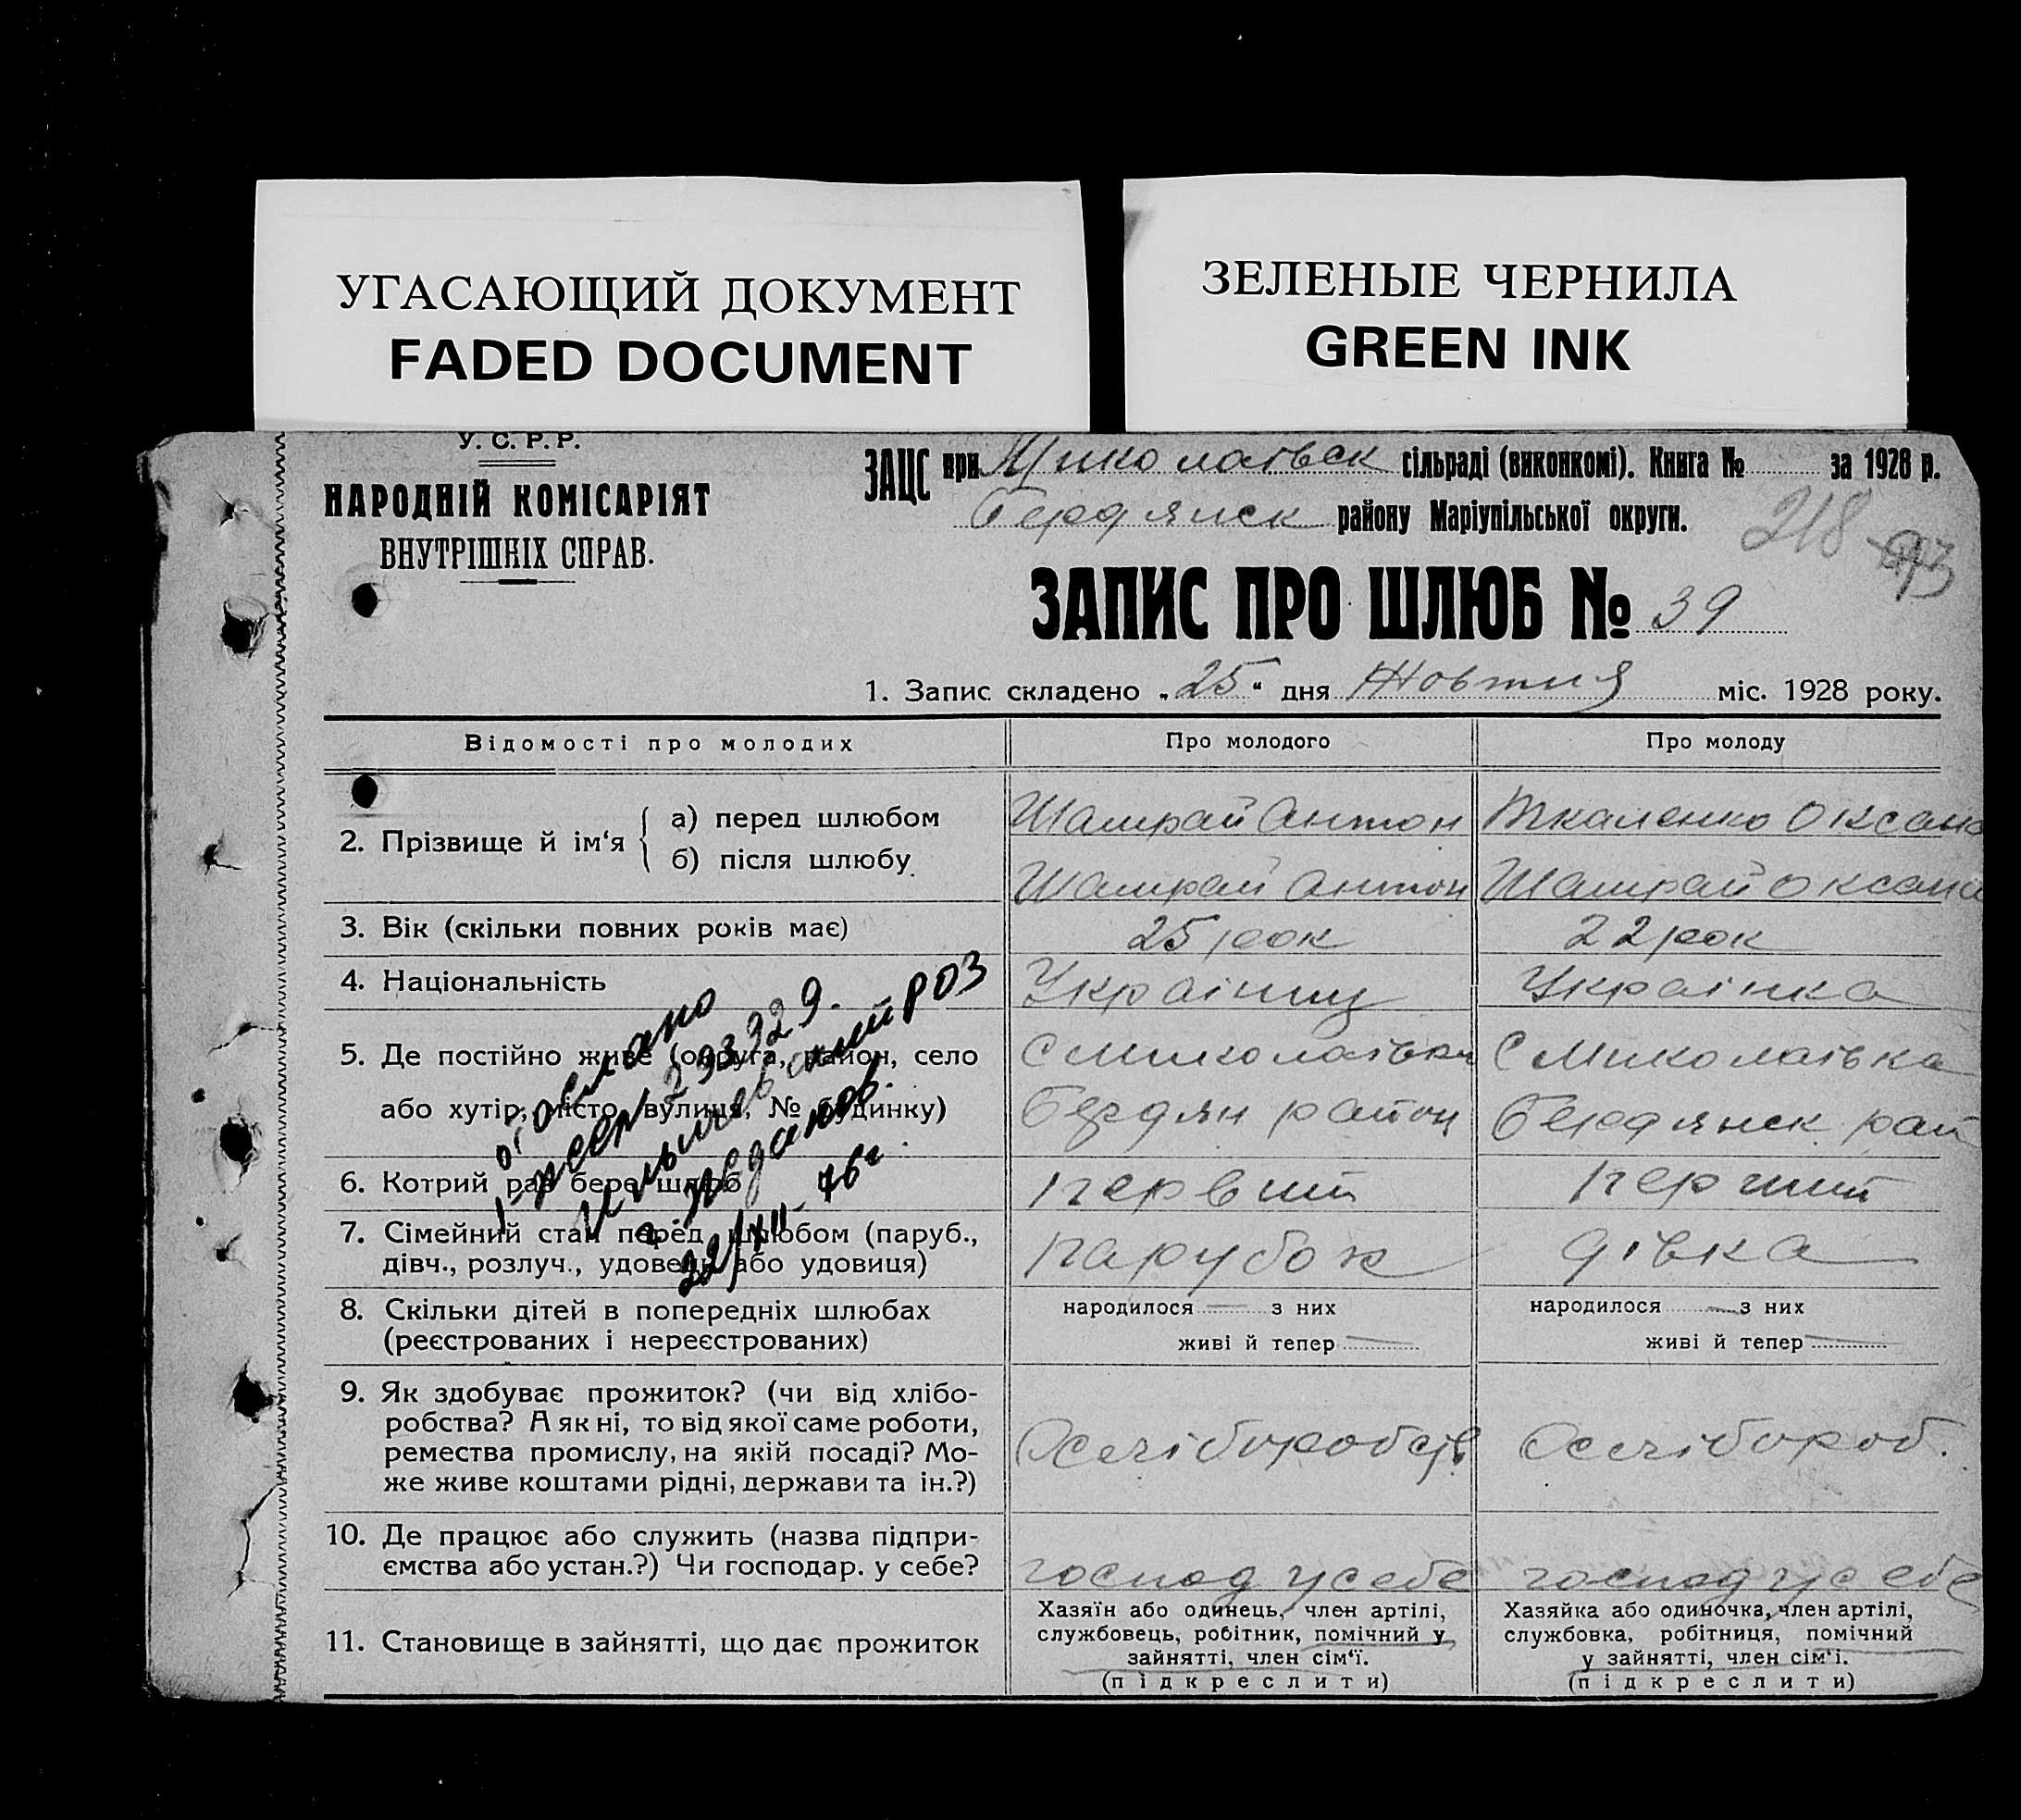 УГАСАЮЩИЙ ДОКУМЕНТ
FADED DOCUMENT
ЗЕЛЕНЫЕ ЧЕРНИЛА
GREEN INK
У. С. Р. Р.
НАРОДНІЙ КОМІСАРІЯТ
ВНУТРІШНІХ СПРАВ.
ЗАЦС при Миколаівск сільраді (виконкомі). Книга № за 1928 р.
Бердянск району Маріупільської округи.
218
ЗАПИС ПРО ШЛЮБ № 39
1. Запис складено „25“ дня Жовтня міс. 1928 року.
Відомості про молодих Про молодого Про молоду
2. Прізвище й ім‘я { а) перед шлюбом Шамрай Антон Ткаленко Оксана
б) після шлюбу Шамрай Антон Шамрай Оксана
3. Вік (скільки повних років має) 25 рок 22 рок
4. Національність Украінец Украінка
5. Де постійно живе (округа, район, село С Миколаівка С Миколаівка
або хутір, місто, вулиця, № будинку) Бердян район Бердянск рай
6. Котрий раз бере шлюб первий перший
7. Сімейний стан перед шлюбом (паруб., парубок дівка
дівч., розлуч., удовець або удовиця)
8. Скільки дітей в попередніх шлюбах народилося — з них народилося — з них
(реєстрованих і нереєстрованих) живі й тепер живі й тепер
9. Як здобуває прожиток? (чи від хлібо-
робства? А як ні, то від якої саме роботи,
ремества промислу, на якій посаді? Мо-
же живе коштами рідні, держави та ін.?)
10. Де працює або служить (назва підпри-
ємства або устан.?) Чи господар. у себе? господ у себе господ у себе
11. Становище в зайнятті, що дає прожиток
Хазяїн або одинець, член артілі,
службовець, робітник, помічний у
зайнятті, член сім‘ї.
(підкреслити)
Хазяйка або одиночка, член артілі,
службовка, робітниця, помічний
у зайнятті, член сім‘ї.
(підкреслити)
отослано
293329.
Ильичевский РОЗ
г. Жданов.
22/XII-76г.